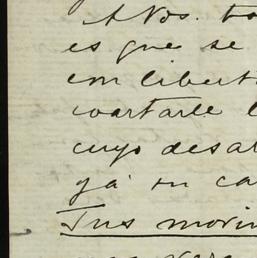 A Nos. to
es que se
con libert
coartarle l
cuyo desar
yá su ca
Tus movim